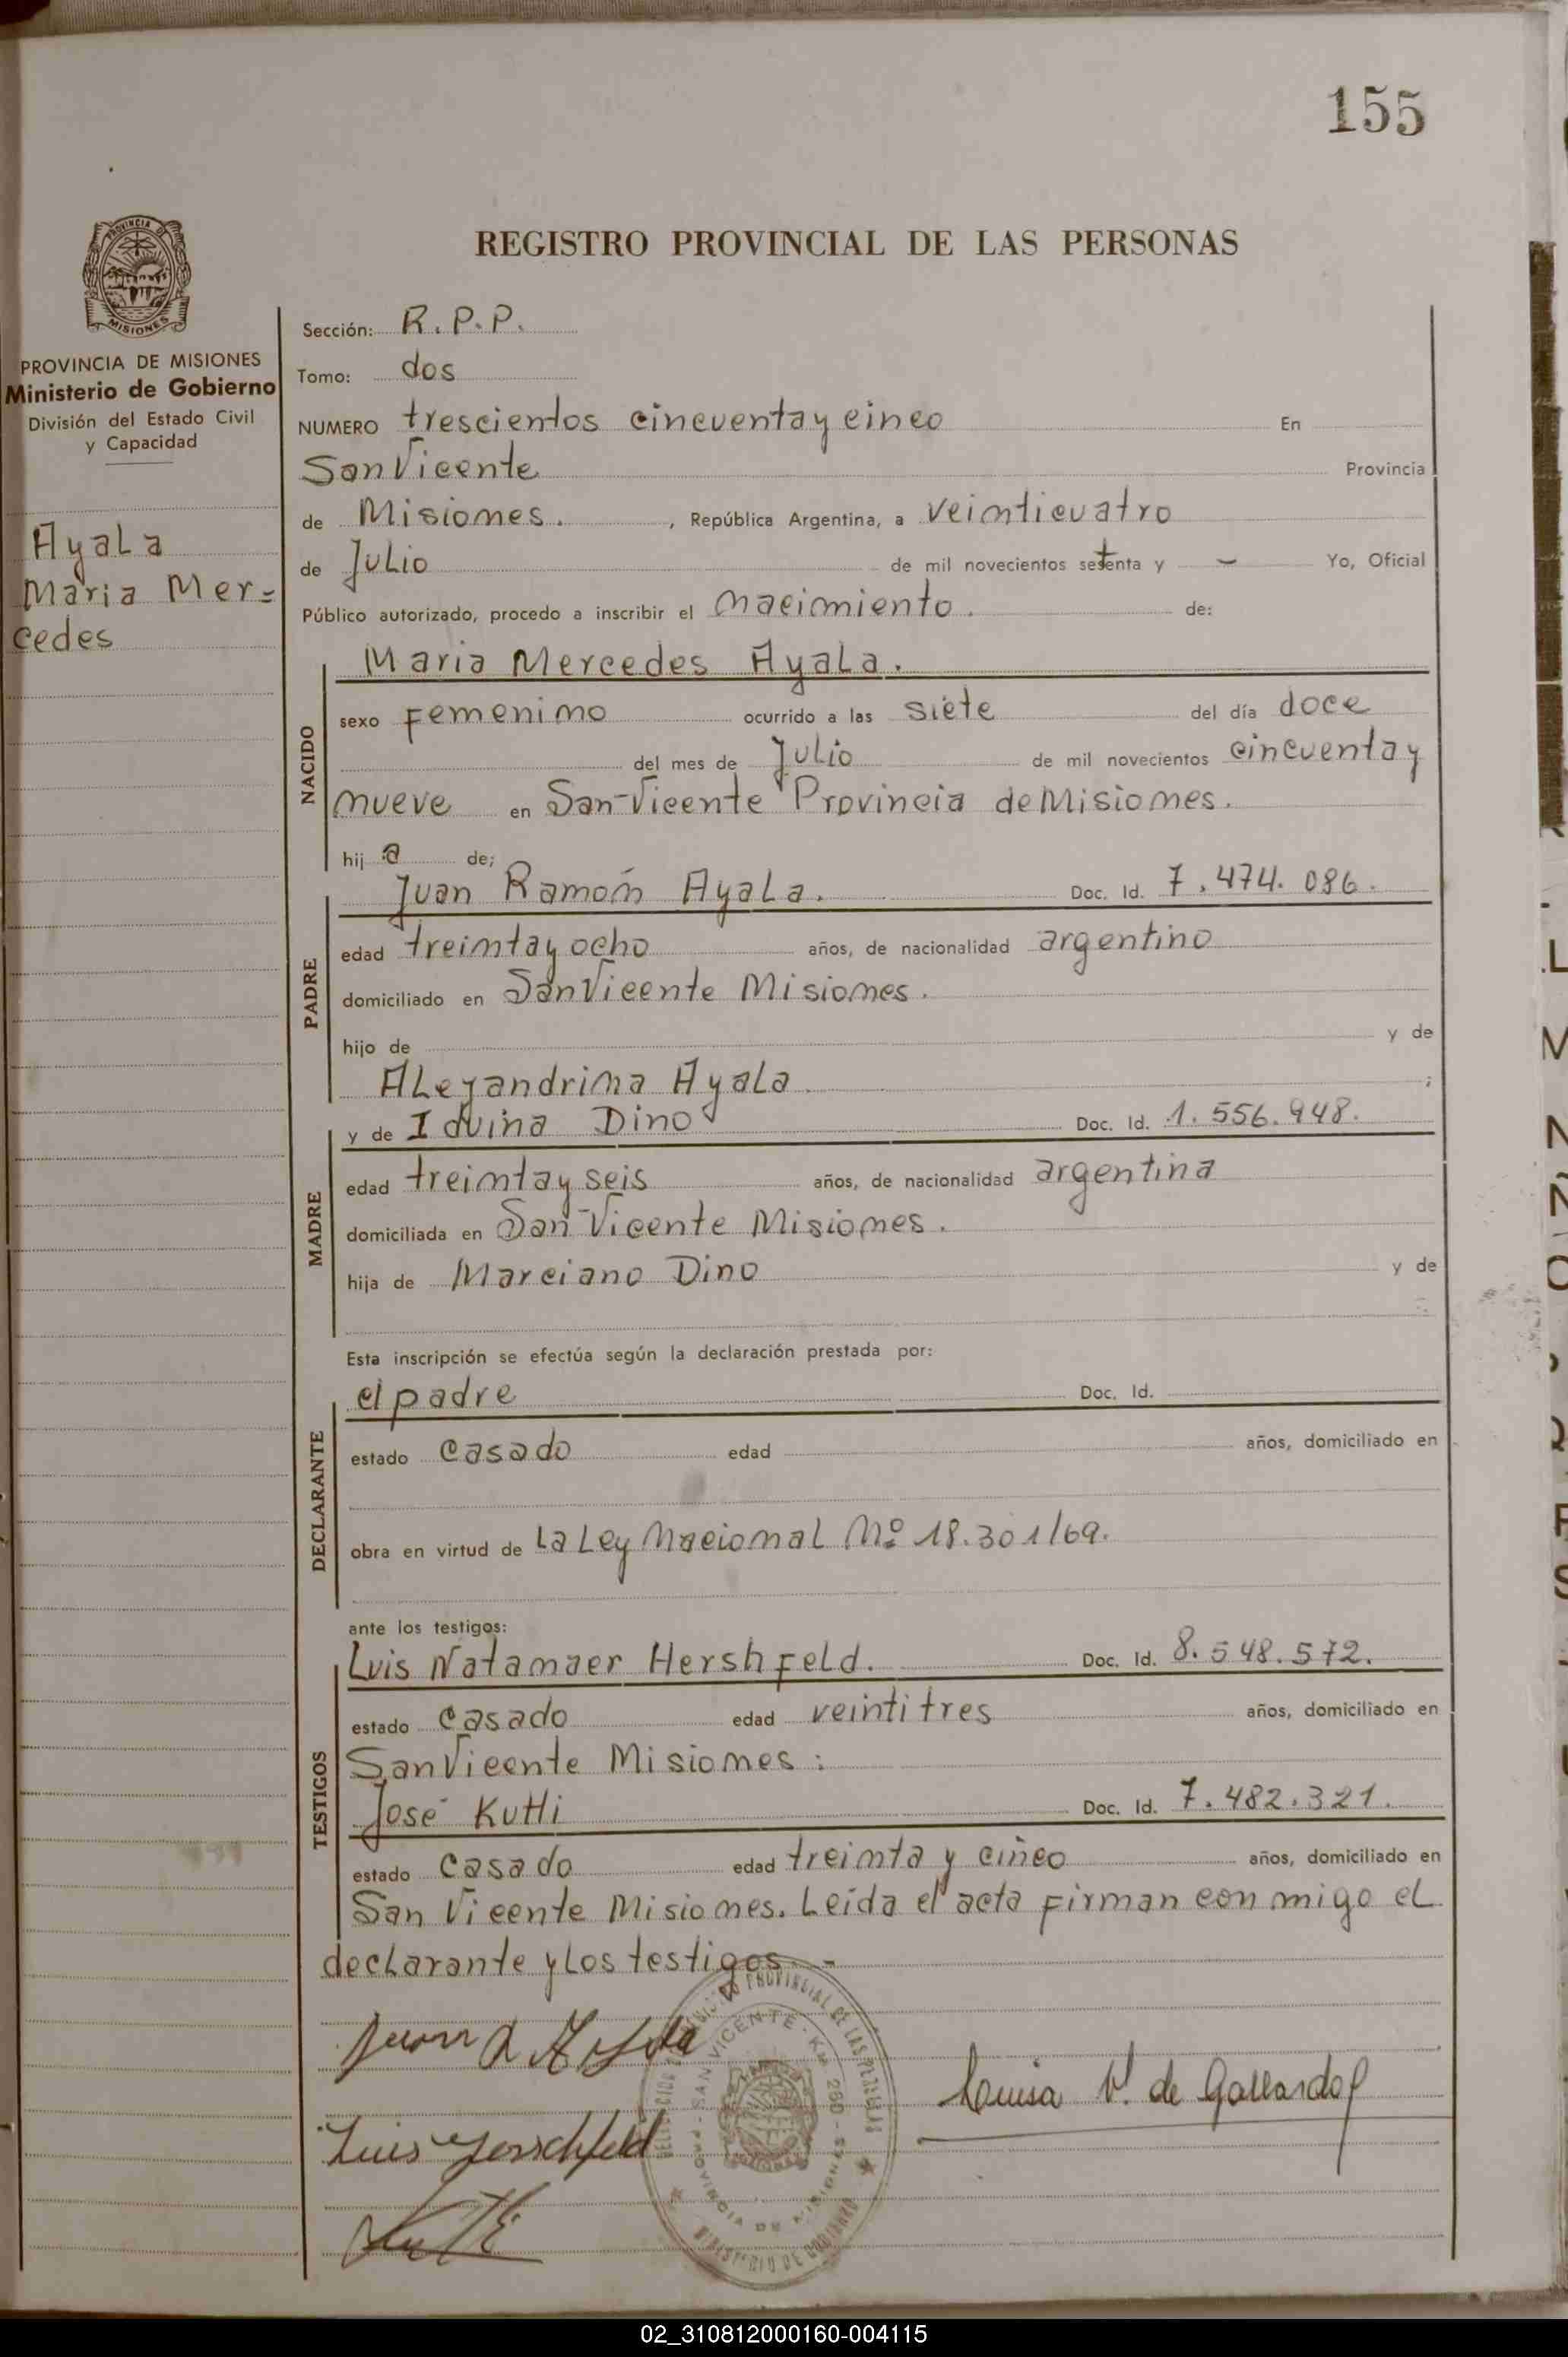 155
REGISTRO PROVINCIAL DE LAS PERSONAS
PROVINCIA DE MISIONES
Ministerio de Gobierno
División del Estado Civil
y Capacidad
Ayala
Maria Mer=
cedes
Sección: R.P.P.
Tomo: dos
NUMERO trescientos cincuenta y cinco En
San Vicente Provincia
de Misiones. , República Argentina, a veinticuatro
de Julio de mil novecientos setenta y — Yo, Oficial
Público autorizado, procedo a inscribir el nacimiento. de:
Maria Mercedes Ayala.
NACIDO
sexo Femenino ocurrido a las siete del día doce
del mes de Julio de mil novecientos cincuenta y
nueve en San Vicente Provincia de Misiones.
hij a de;
PADRE
Juan Ramón Ayala. Doc. Id. 7.474.086.
edad treinta y ocho años, de nacionalidad argentino
domiciliado en San Vicente Misiones.
hijo de y de
Aleyandrina Ayala ;
MADRE
y de Iduina Dino Doc. Id. 1.556.948.
edad treinta y seis años, de nacionalidad argentina
domiciliada en San Vicente Misiones.
hija de Marciano Dino y de
Esta inscripción se efectúa según la declaración prestada por:
DECLARANTE
el padre Doc. Id.
estado casado edad años, domiciliado en
obra en virtud de La Ley Nacional Nº 18.301/69.
ante los testigos:
TESTIGOS
Luis Natamaer Hershfeld. Doc. Id. 8.548.572.
estado casado edad veintitres años, domiciliado en
San Vicente Misiones:
José Kutti Doc. Id. 7.482.321.
estado casado edad treinta y cinco años, domiciliado en
San Vicente Misiones. Leída el acta firman con migo el
declarante y los testigos. -
Juan R Ayala
Luis Herschfeld
Luisa V. de Gallardo
SAN VICENTE - KM 280 - PROVINCIA DE MISIONES
MINISTERIO DE GOBIERNO
02_310812000160-004115